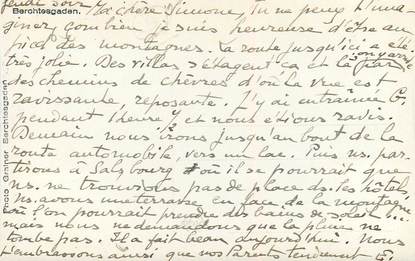 jeudi soir Ma chère Simone Tu ne peux t'ima-
Berchtesgaden.
giner combien je suis heureuse d'être au
pied des montagnes. La route jusqu'ici a été
très jolie. Des villas s'étagent ça et là par
des chemins de chèvres d'où la vue est
ravissante, reposante. J'y ai entrainé G.
pendant 1 heure et nous étions ravis.
Demain nous irons jusqu'au bout de la
route automobile, vers un lac. Puis ns. par-
tirons à Salzbourg où il se pourrait que
ns. ne trouvions pas de place ds. les hôtels
ns. avons une terrasse en face de la montagne
où l'on pourrait prendre des bains de soleil ...
mais nous ne demandons que la pluie ne
tombe pas. Il a fait beau aujourd'hui. Nous
t'embrassons ainsi que vos Parents tendrement
Photo Grainer Berchtesgaden.